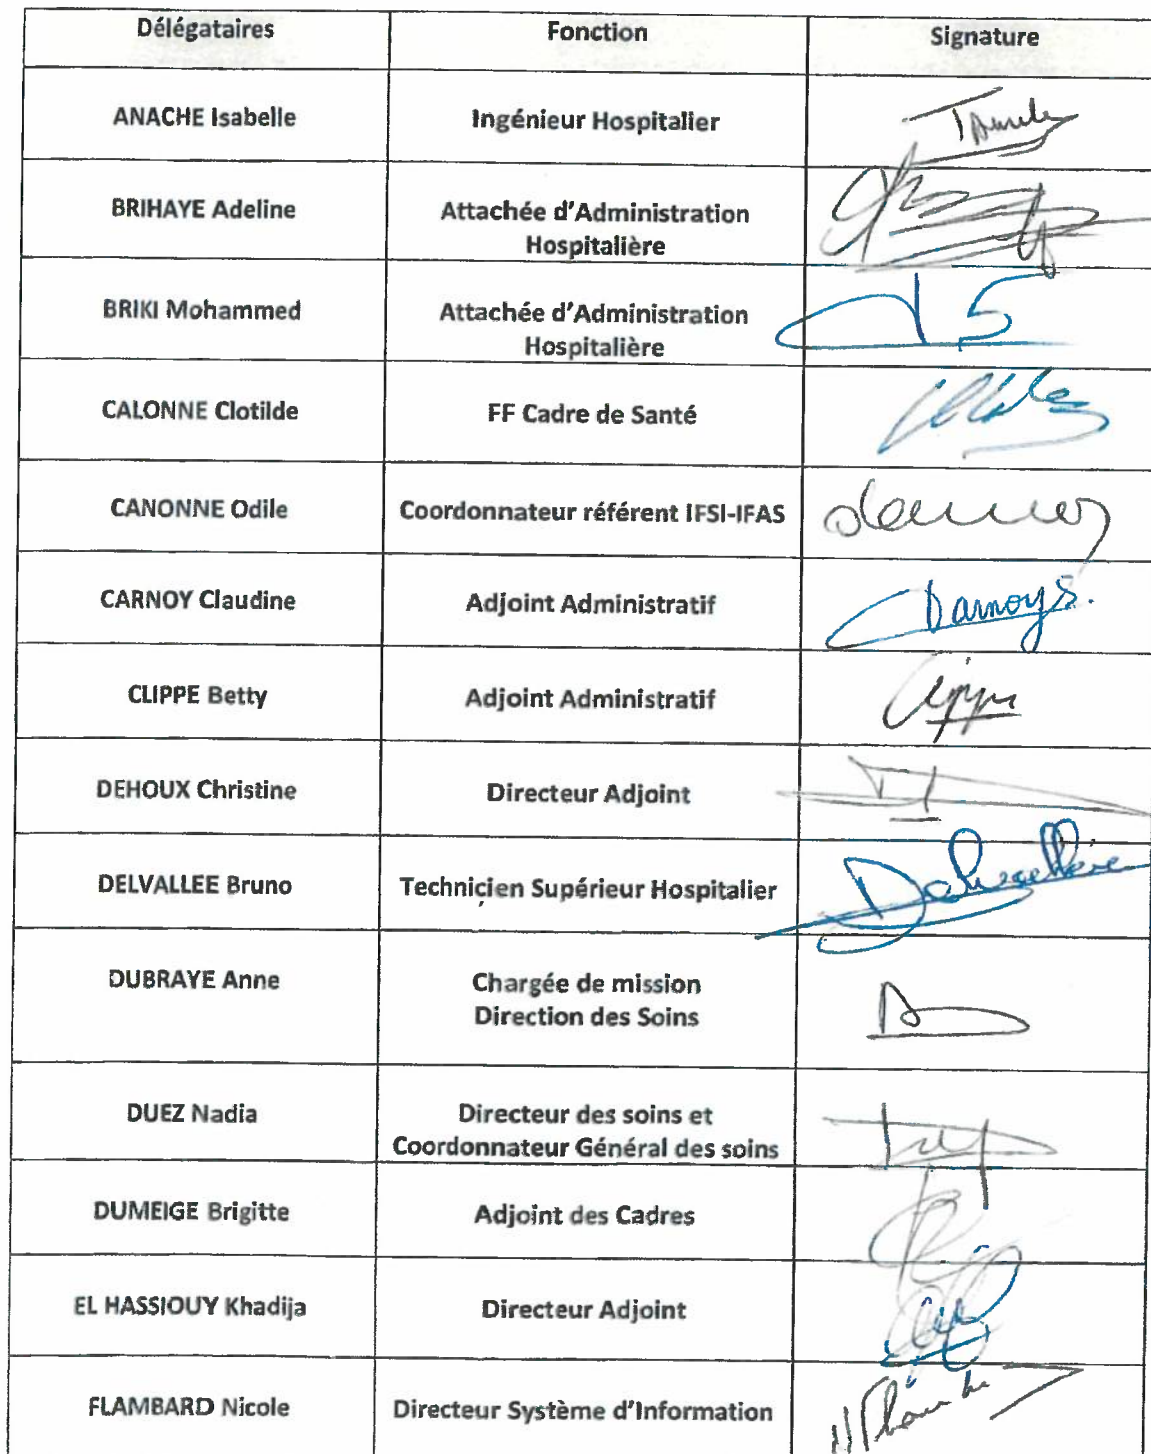 Délégataires Fonction Signature
ANACHE Isabelle Ingénieur Hospitalier
BRIHAYE Adeline Attachée d'Administration
Hospitalière
BRIKI Mohammed Attachée d'Administration
Hospitalière
CALONNE Clotilde FF Cadre de Santé
CANONNE Odile Coordonnateur référent IFSI-IFAS
CARNOY Claudine Adjoint Administratif
CLIPPE Betty Adjoint Administratif
DEHOUX Christine Directeur Adjoint
DELVALLEE Bruno Technicien Supérieur Hospitalier
DUBRAYE Anne Chargée de mission
Direction des Soins
DUEZ Nadia Directeur des soins et
Coordonnateur Général des soins
DUMEIGE Brigitte Adjoint des Cadres
EL HASSIOUY Khadija Directeur Adjoint
FLAMBARD Nicole Directeur Système d'Information